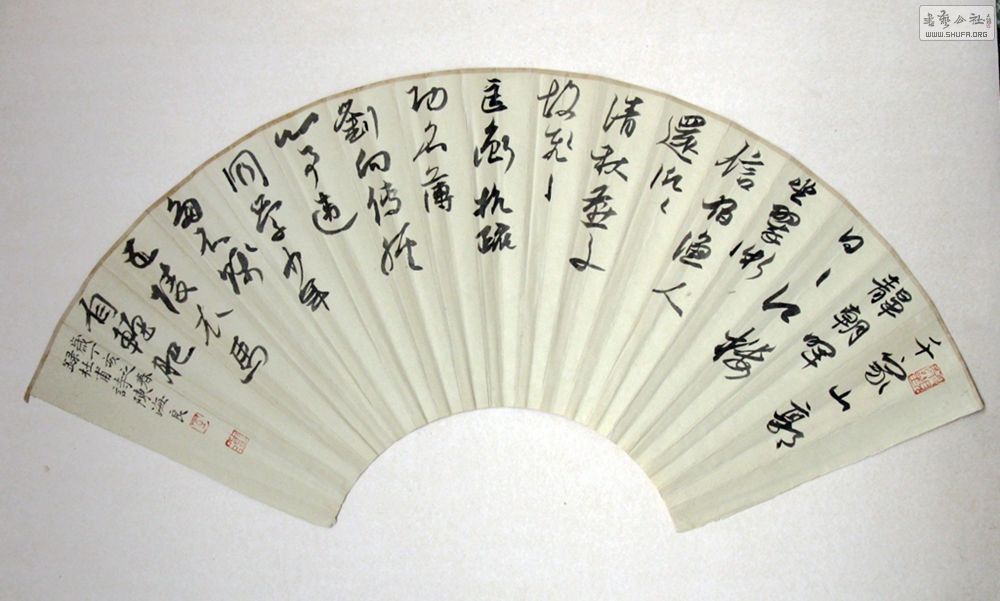 千家山郭
靜朝暉
日〻江樓
坐翠微
信宿漁人
還泛〻
清秋燕子
故飛〻
匡衡抗疏
功名薄
劉向傳經
心事違
同學少年
多不賤
五陵衣馬
自輕肥
歲丁亥
録杜甫詩陳海良
書藝公社
WWW.SHUFA.ORG